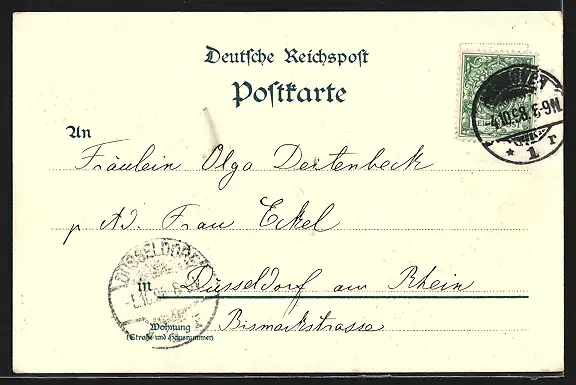 Deutsche Reichspost
Postkarte
An
Fräulein Olga Deitenbeck
p Ad. Frau Eckel
in Düsseldorf am Rhein
Wohnung
(Straße und Hausnummer)
Bismarkstrasse
4.10.98. 8-9N.
* 1 r
DÜSSELDORF